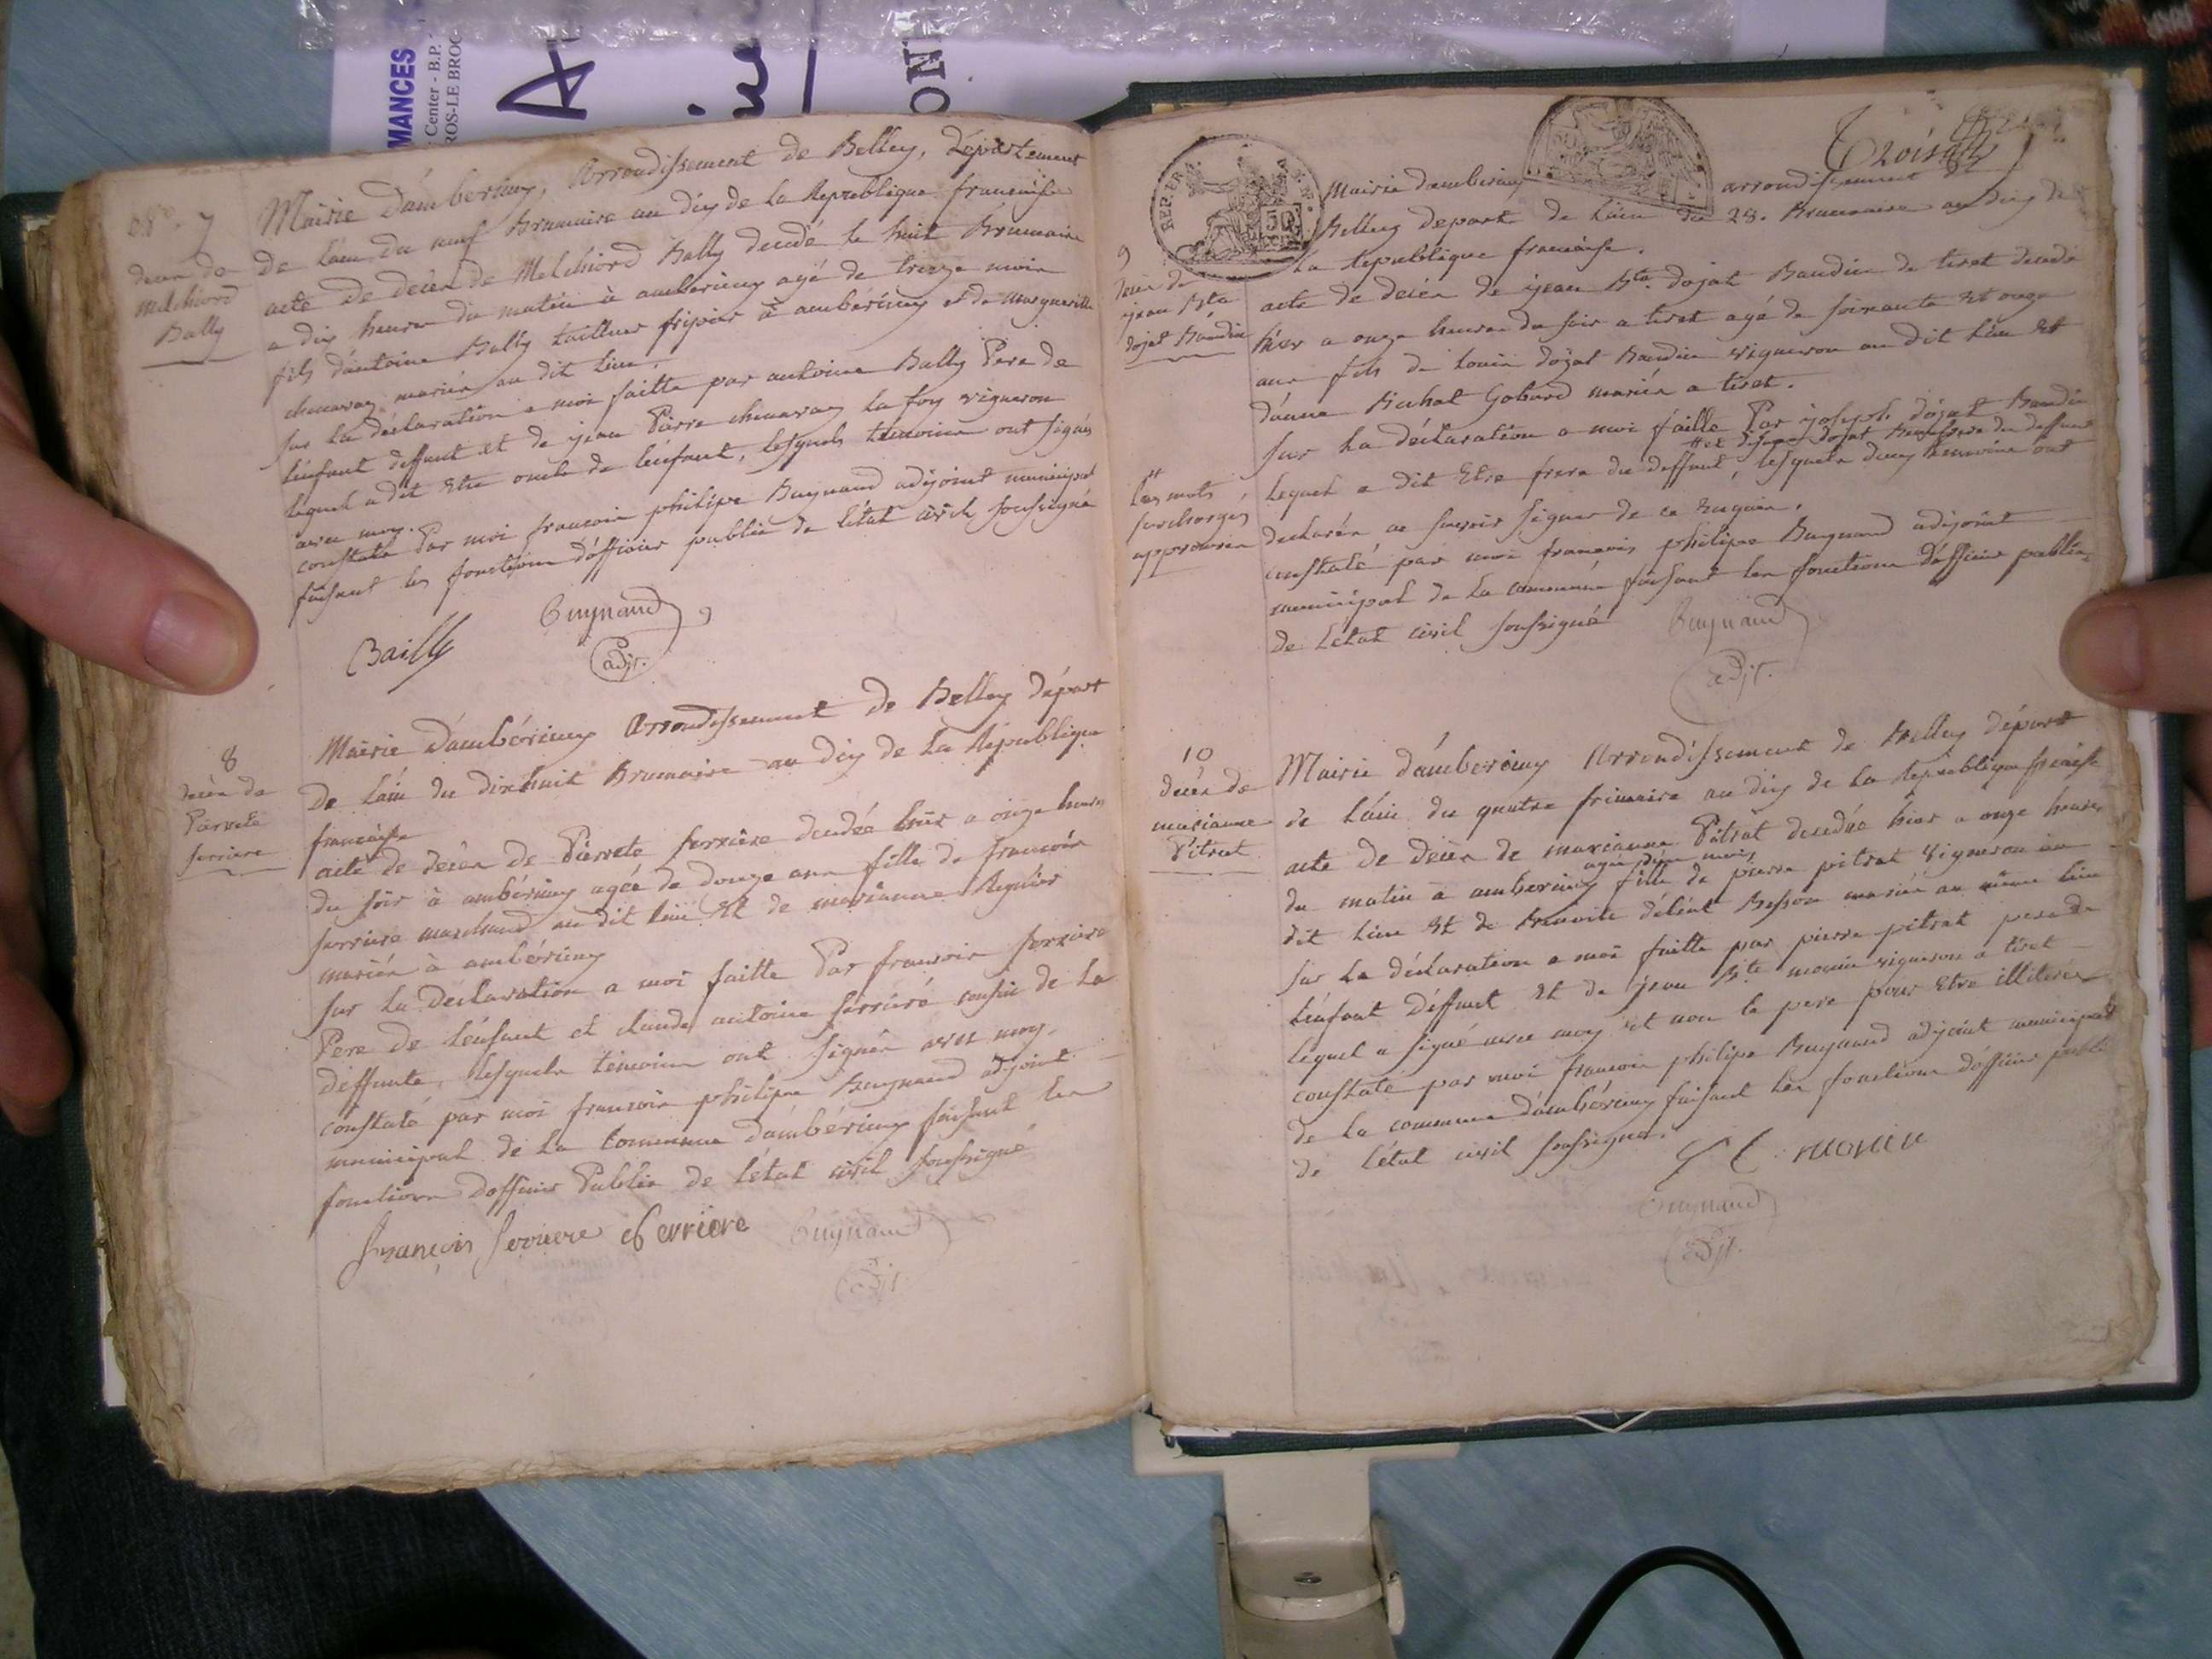 MANCES
Center - B.P.
ROS-LE BROC
A
ON
N° 7
décès de
Melchiord
Bally
Mairie d'ambérieux, arrondissement de Belley, Département
de l'ain du neuf Brumaire an dix de la Republique francaise
acte de décès de Melchiord Bally decedé le huit Brumaire
a dix heures du matin à amberieux agé de treize mois
fils d'antoine Bally tailleur fripier à ambérieux et de marguerite
chenavaz mariés au dit lieu.
sur la déclaration a moi faitte par antoine Bally Pere de
l'enfant deffunt et de jean Pierre chenavaz la foy vigneron
lequel a dit etre oncle de l'enfant, lesquels temoins ont signés
avec moy.
constaté Par moi francois philipe Buynand adjoint municipal
faisant les fonctions d'officier public de l'état civil soussigné
Bailly
Buynand
adjt.
8
décès de
Pierrete
ferriere
Mairie d'ambérieux arrondissement de Belley départ
de l'ain du dixhuit Brumaire an dix de la République
francaise
acte de décès de Pierrete ferriere decedée hier a onze heures
du soir à ambérieux agée de douze ans fille de francois
ferriere marchand au dit lieu et de marianne Regnier
mariés à ambérieux
sur la déclaration a moi faitte Par francois ferriere
Pere de l'enfant et claude antoine ferriere cousin de la
deffunte, lesquels témoins ont signés avec moy.
constaté par moi francois philipe Buynand adjoint
municipal de la commune d'ambérieux faisant les
fonctions d'officier Public de l'état civil soussigné
françois ferriere C ferriere Buynand
adjt.
REP. FR.
50
Troisième
9
décès de
jean Bte
dojat Baudin
Mairie d'amberieux arrondissement de
Belley depart de l'ain du 28. Brumaire an dix de
la République francaise.
acte de décès de jean Bte. dojat Baudin de tiret decedé
hier a onze heures du soir a tiret agé de soixante et onze
ans fils de louis dojat Baudin vigneron au dit lieu et
d'anne Bachat Gobard mariés a tiret.
sur la déclaration a moi faitte Par joseph dojat Baudin
# et dojat Baudin frere du deffunt
lequel a dit Etre frere du deffunt, lesquels deux temoins ont
declarés ne savoir signer de ce Requis.
# les mots
surchargés
approuvés
constaté par moi francois philipe Buynand adjoint
municipal de la commune faisant les fonctions d'officier public
de l'état civil soussigné Buynand
adjt.
10
décès de
marianne
Pitrat
Mairie d'amberieux arrondissement de Belley départ
de l'ain du quatre frimaire an dix de la République francaise
acte de décès de marianne Pitrat decedée hier a onze heures
agée d'un mois
du matin a amberieux fille de pierre pitrat vigneron au
dit lieu et de Besson mariés au même lieu
sur la déclaration a moi faitte par pierre pitrat pere de
l'enfant deffunt et de jean Bte. monin vigneron a tiret
lequel a signé avec moy et non le pere pour Etre illiteré
constaté par moi francois philipe Buynand adjoint municipal
de la commune d'ambérieux faisant les fonctions d'officier public
de l'état civil soussigné. monin
Buynand
adjt.